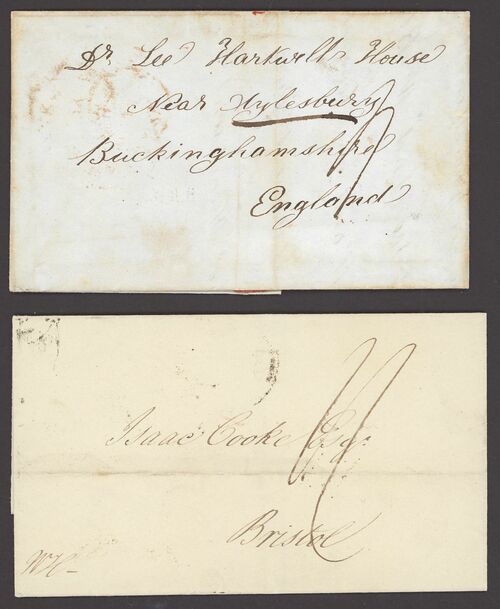 Dr. Lee Hartwell House
Near Aylesbury
Buckinghamshire
England
Isaac Cooke Esqr.
Bristol